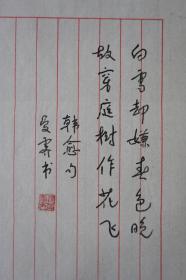 白雪却嫌春色晚
故穿庭树作花飞
韩愈句